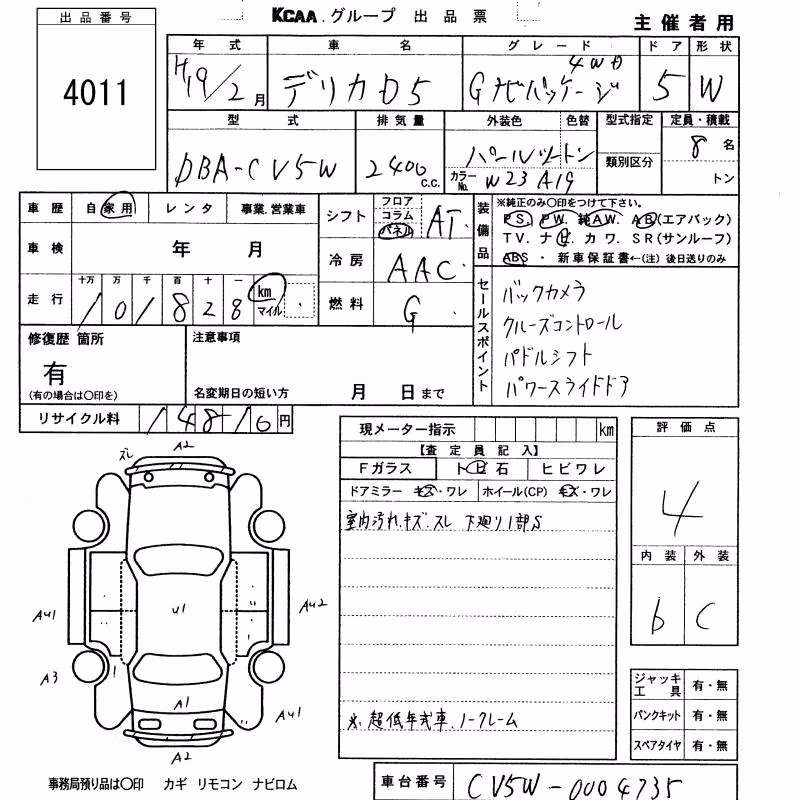 KCAA.グループ 出品票
主催者用
出品番号
4011
年式 車名 グレード ドア 形状
H19/2月 デリカD5 Gナビパッケージ 4WD 5 W
型式 排気量 外装色 色替 型式指定 定員・積載
DBA-CV5W 2400 c.c. パールツートン 類別区分 8名
カラーNo. W23 A19 トン
車歴 自家用 レンタ 事業.営業車
シフト フロア コラム パネル AT
装備品 ※純正のみ○印をつけて下さい。
PS. PW. 純AW. AB(エアバック)
TV. ナビ. カワ. SR(サンルーフ)
ABS ・ 新車保証書←(注) 後日送りのみ
車検 年 月
冷房 AAC
走行 十万 万 千 百 十 一
1 0 1 8 2 8 km マイル
燃料 G
セールスポイント
バックカメラ
クルーズコントロール
パドルシフト
パワースライドドア
修復歴 箇所
有
(有の場合は○印を)
注意事項
名変期日の短い方 月 日まで
リサイクル料 円
現メーター指示 km
【査定員記入】
Fガラス トビ石 ヒビワレ
ドアミラー キズ・ワレ ホイール(CP) キズ・ワレ
室内汚れ.キズ.スレ 下廻り1部S
※.超低年式車.ノークレーム
評価点
4
内装 外装
b C
ジャッキ工具 有・無
パンクキット 有・無
スペアタイヤ 有・無
ズレ A2
AU1 U1 AU2
A3 1 A1 AU1
A2
事務局預り品は○印 カギ リモコン ナビロム
車台番号 CV5W-0004735